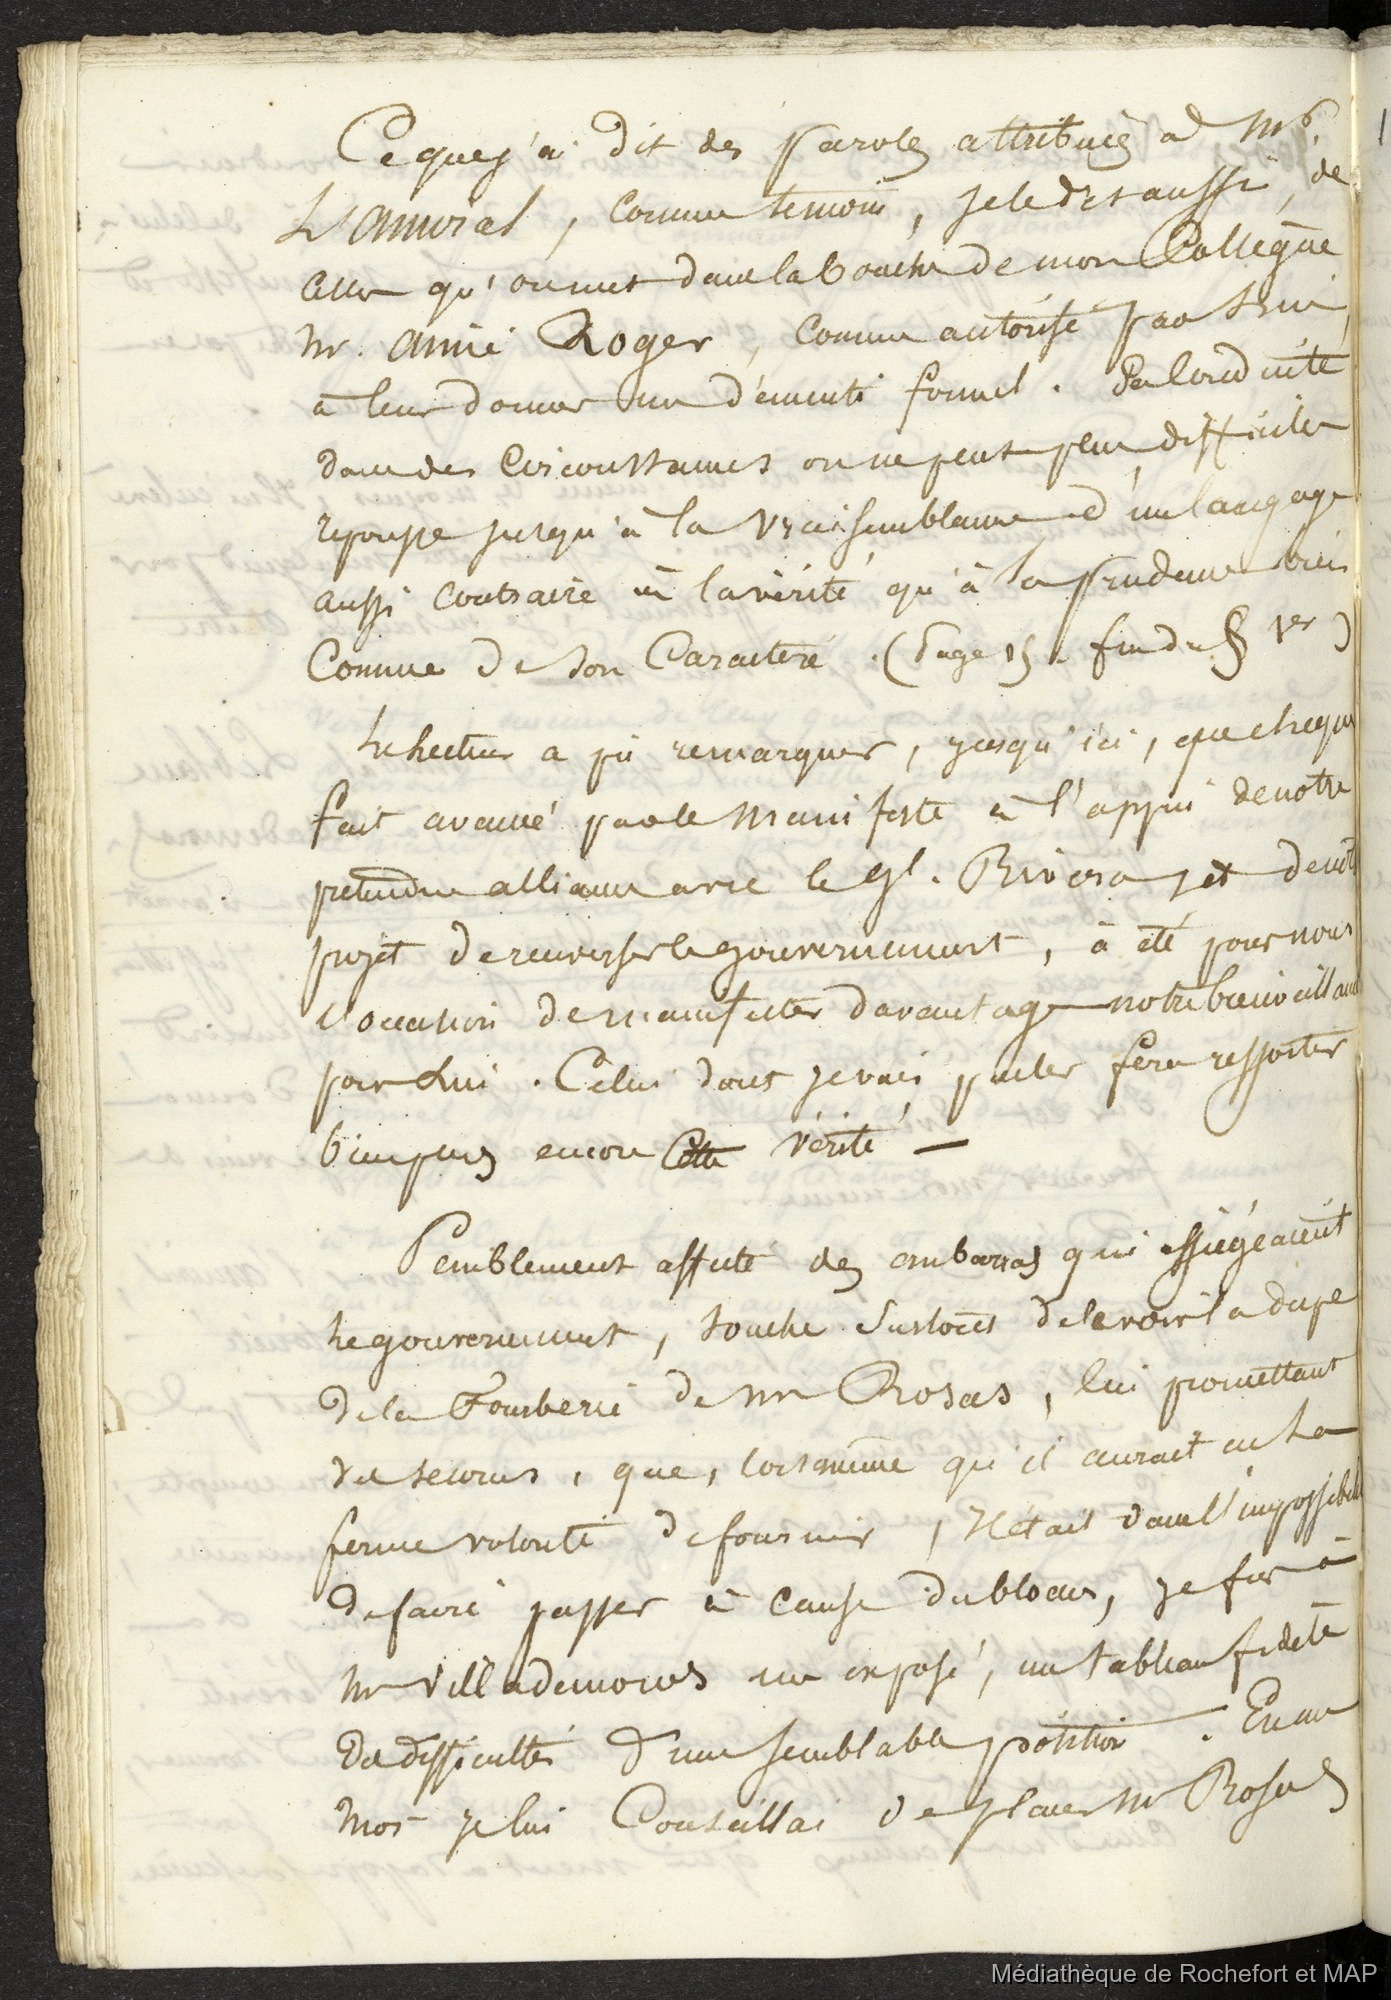 Ce que j'ai dit des paroles attribuées à Mr.
L'amiral, comme temoin, je le dis aussi, de
celles qu'on met dans la bouche de mon Collegue
Mr. Aimé Roger, comme autorisé par Lui,
à leur donner un démenti formel. Sa conduite
dans des circonstances on ne peut plus difficiles
repousse jusqu'à la vraisemblance d'un langage
aussi contraire à la vérité qu'à la prudence bien
connue de son Caractere. (Page 15. fin du § 1er)
Le Lecteur a pû remarquer, jusqu'ici, que chaque
fait avancé par le Manifeste à l'appui de notre
pretendue alliance avec le gl. Rivera et de not
projet de renverser le gouvernement, à été pour nous
l'occasion de manifester davantage notre bienveillance
pour Lui. Celui dont je vais parler fera ressortir
bien plus encore Cette vérité —
Peniblement affecté des embarras qui assiégeaient
Le gouvernement, touché surtout de le voir la dupe
de la Fourberie de Mr Rosas, lui promettant
des secours, que, lors même qu'il aurait eu La
ferme volonté de fournir, Il était dans l'impossibilité
de faire passer à cause du blocus, je fis à
Mr Villademoros un exposé, un tableau fidèle
des difficultés d'une semblable position. En un
mot je lui Conseillai de placer Mr Rosas
Médiathèque de Rochefort et MAP